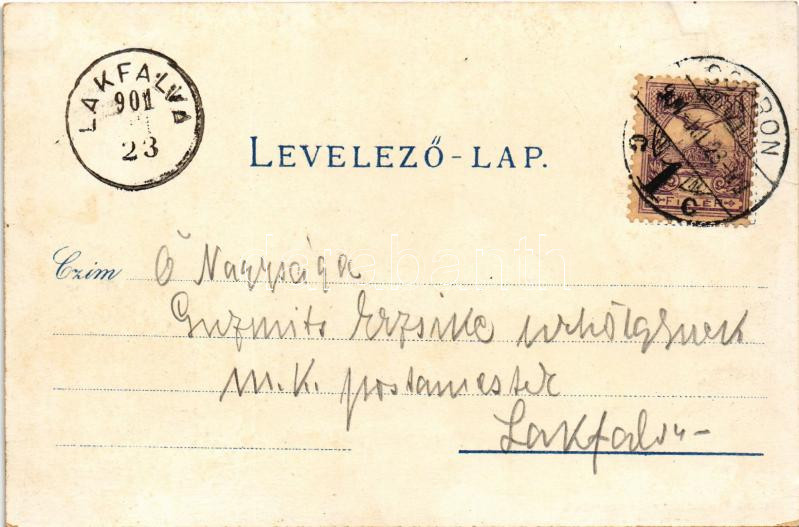 LAKFALVA
901
23
SOPRON
C C
FILLÉR
LEVELEZŐ-LAP.
Czim Ő Nagysága
Guzmits Erzsike úrhölgynek
m. k. postamester
Lakfalva